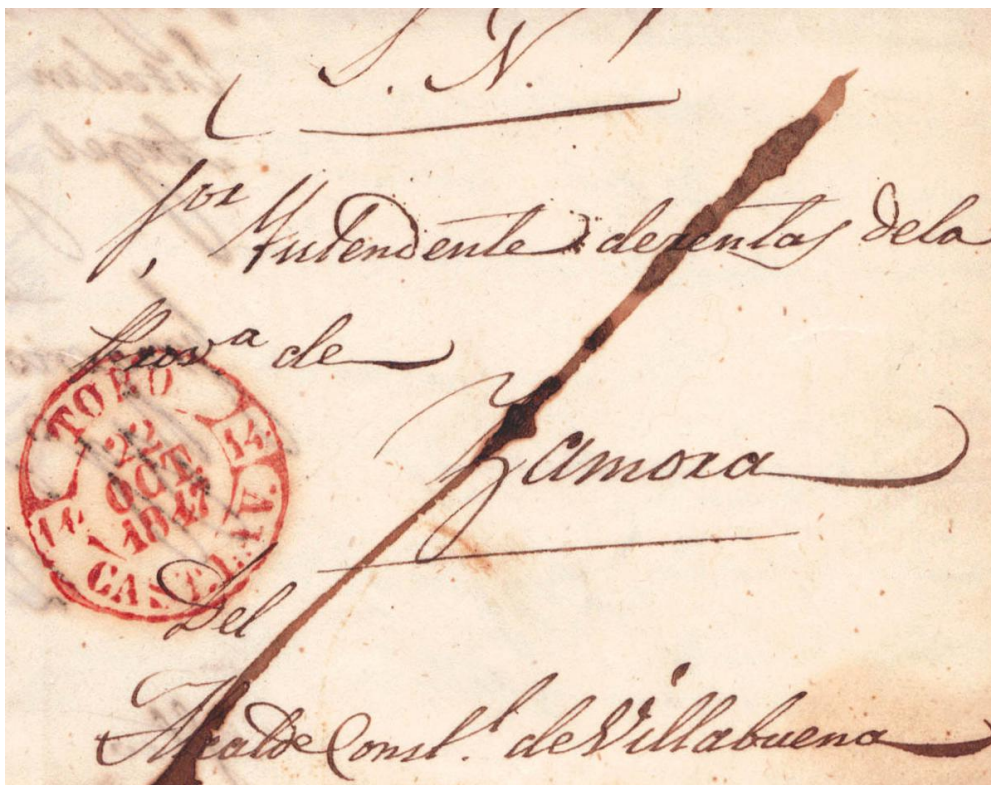 S. N.
Sor Yntendente de rentas de la
Prova de
Zamora
TORO
22
OCT.
1847
14
14
CAST. LA V.
Del
Alcalde Constl. de Villabuena